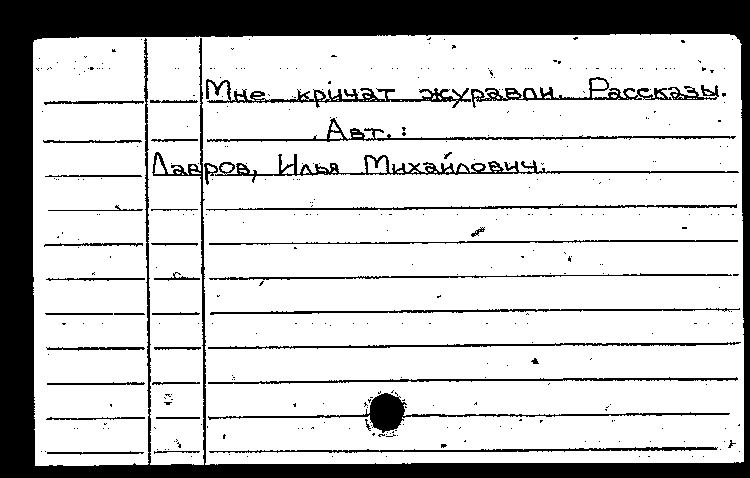 Мне кричат журавли. Рассказы.
Авт.:
Лавров, Илья Михайлович.